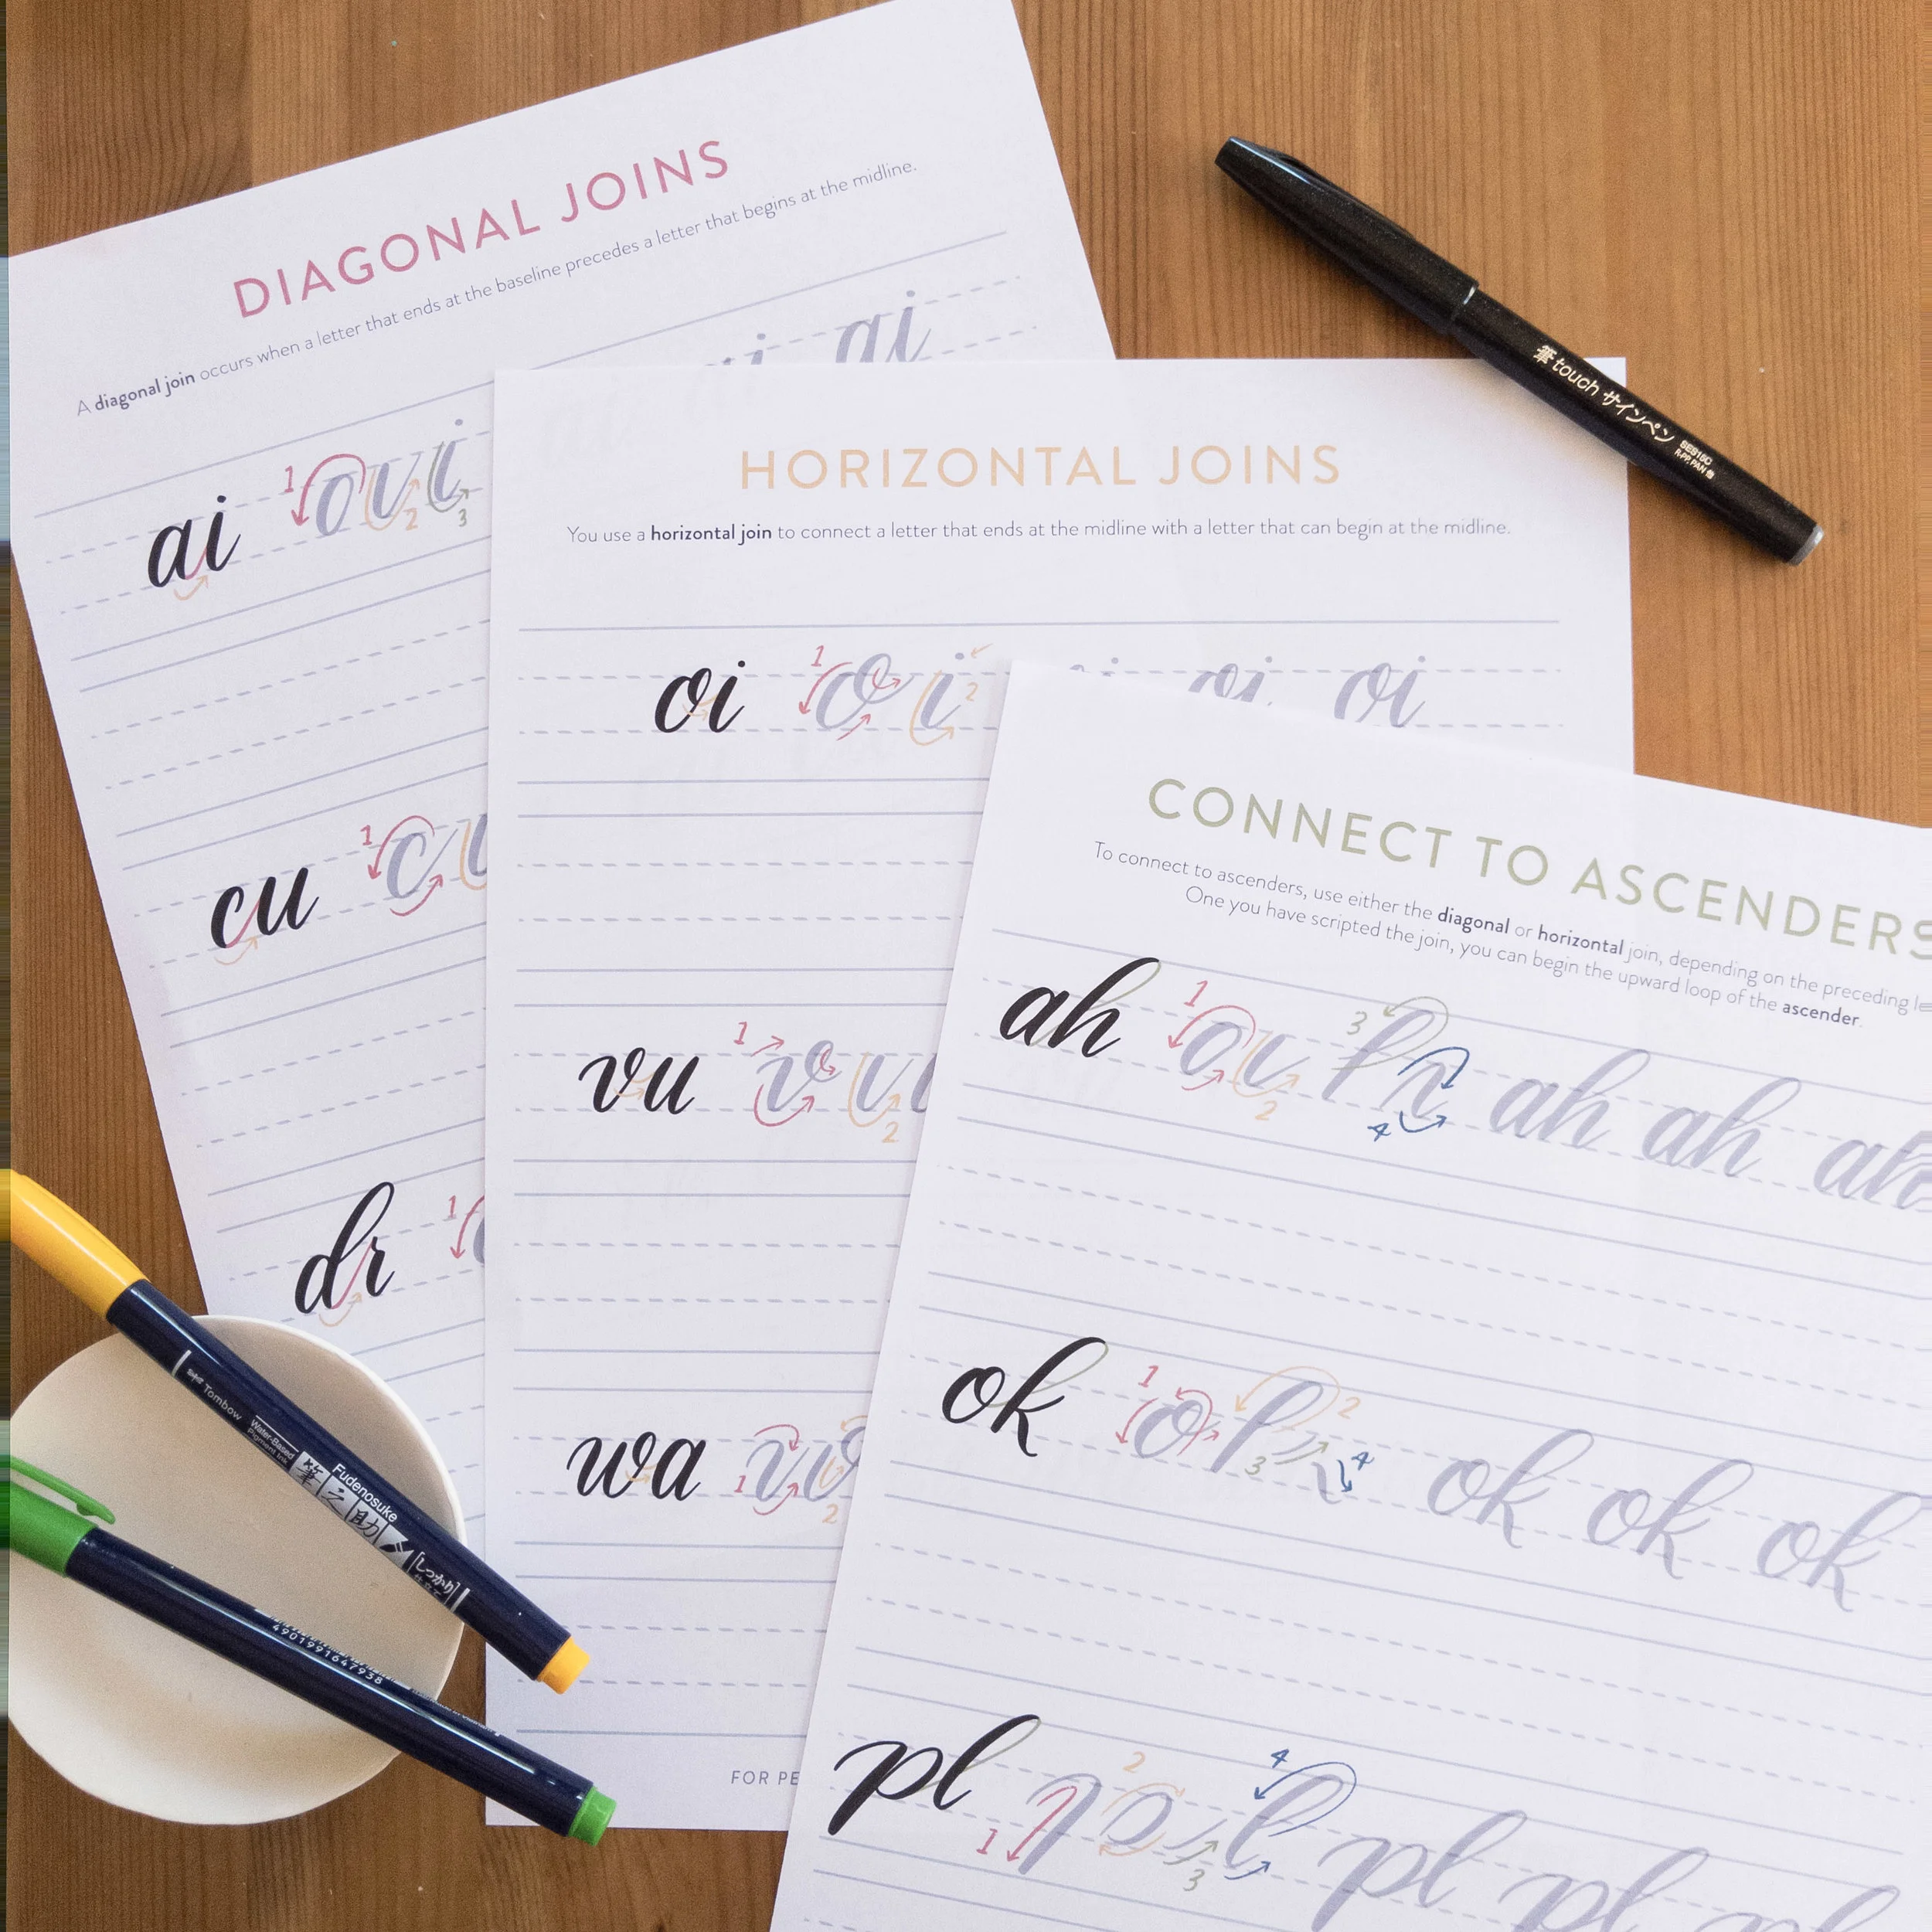 DIAGONAL JOINS
A diagonal join occurs when a letter that ends at the baseline precedes a letter that begins at the midline.
ai 1 2 3 ai
cu 1
dr 1
HORIZONTAL JOINS
You use a horizontal join to connect a letter that ends at the midline with a letter that can begin at the midline.
oi 1 2 oi oi
vu 1 2
wa 1 2
FOR PE
CONNECT TO ASCENDERS
To connect to ascenders, use either the diagonal or horizontal join, depending on the preceding le
One you have scripted the join, you can begin the upward loop of the ascender.
ah 1 2 3 4 ah ah ah
ok 1 2 3 4 ok ok ok
pl 1 2 3 4 pl pl pl
筆touch サインペン SES15C
Tombow Water-Based Pigment Ink Fudenosuke 筆之助 しっかり仕立て
4901991647938